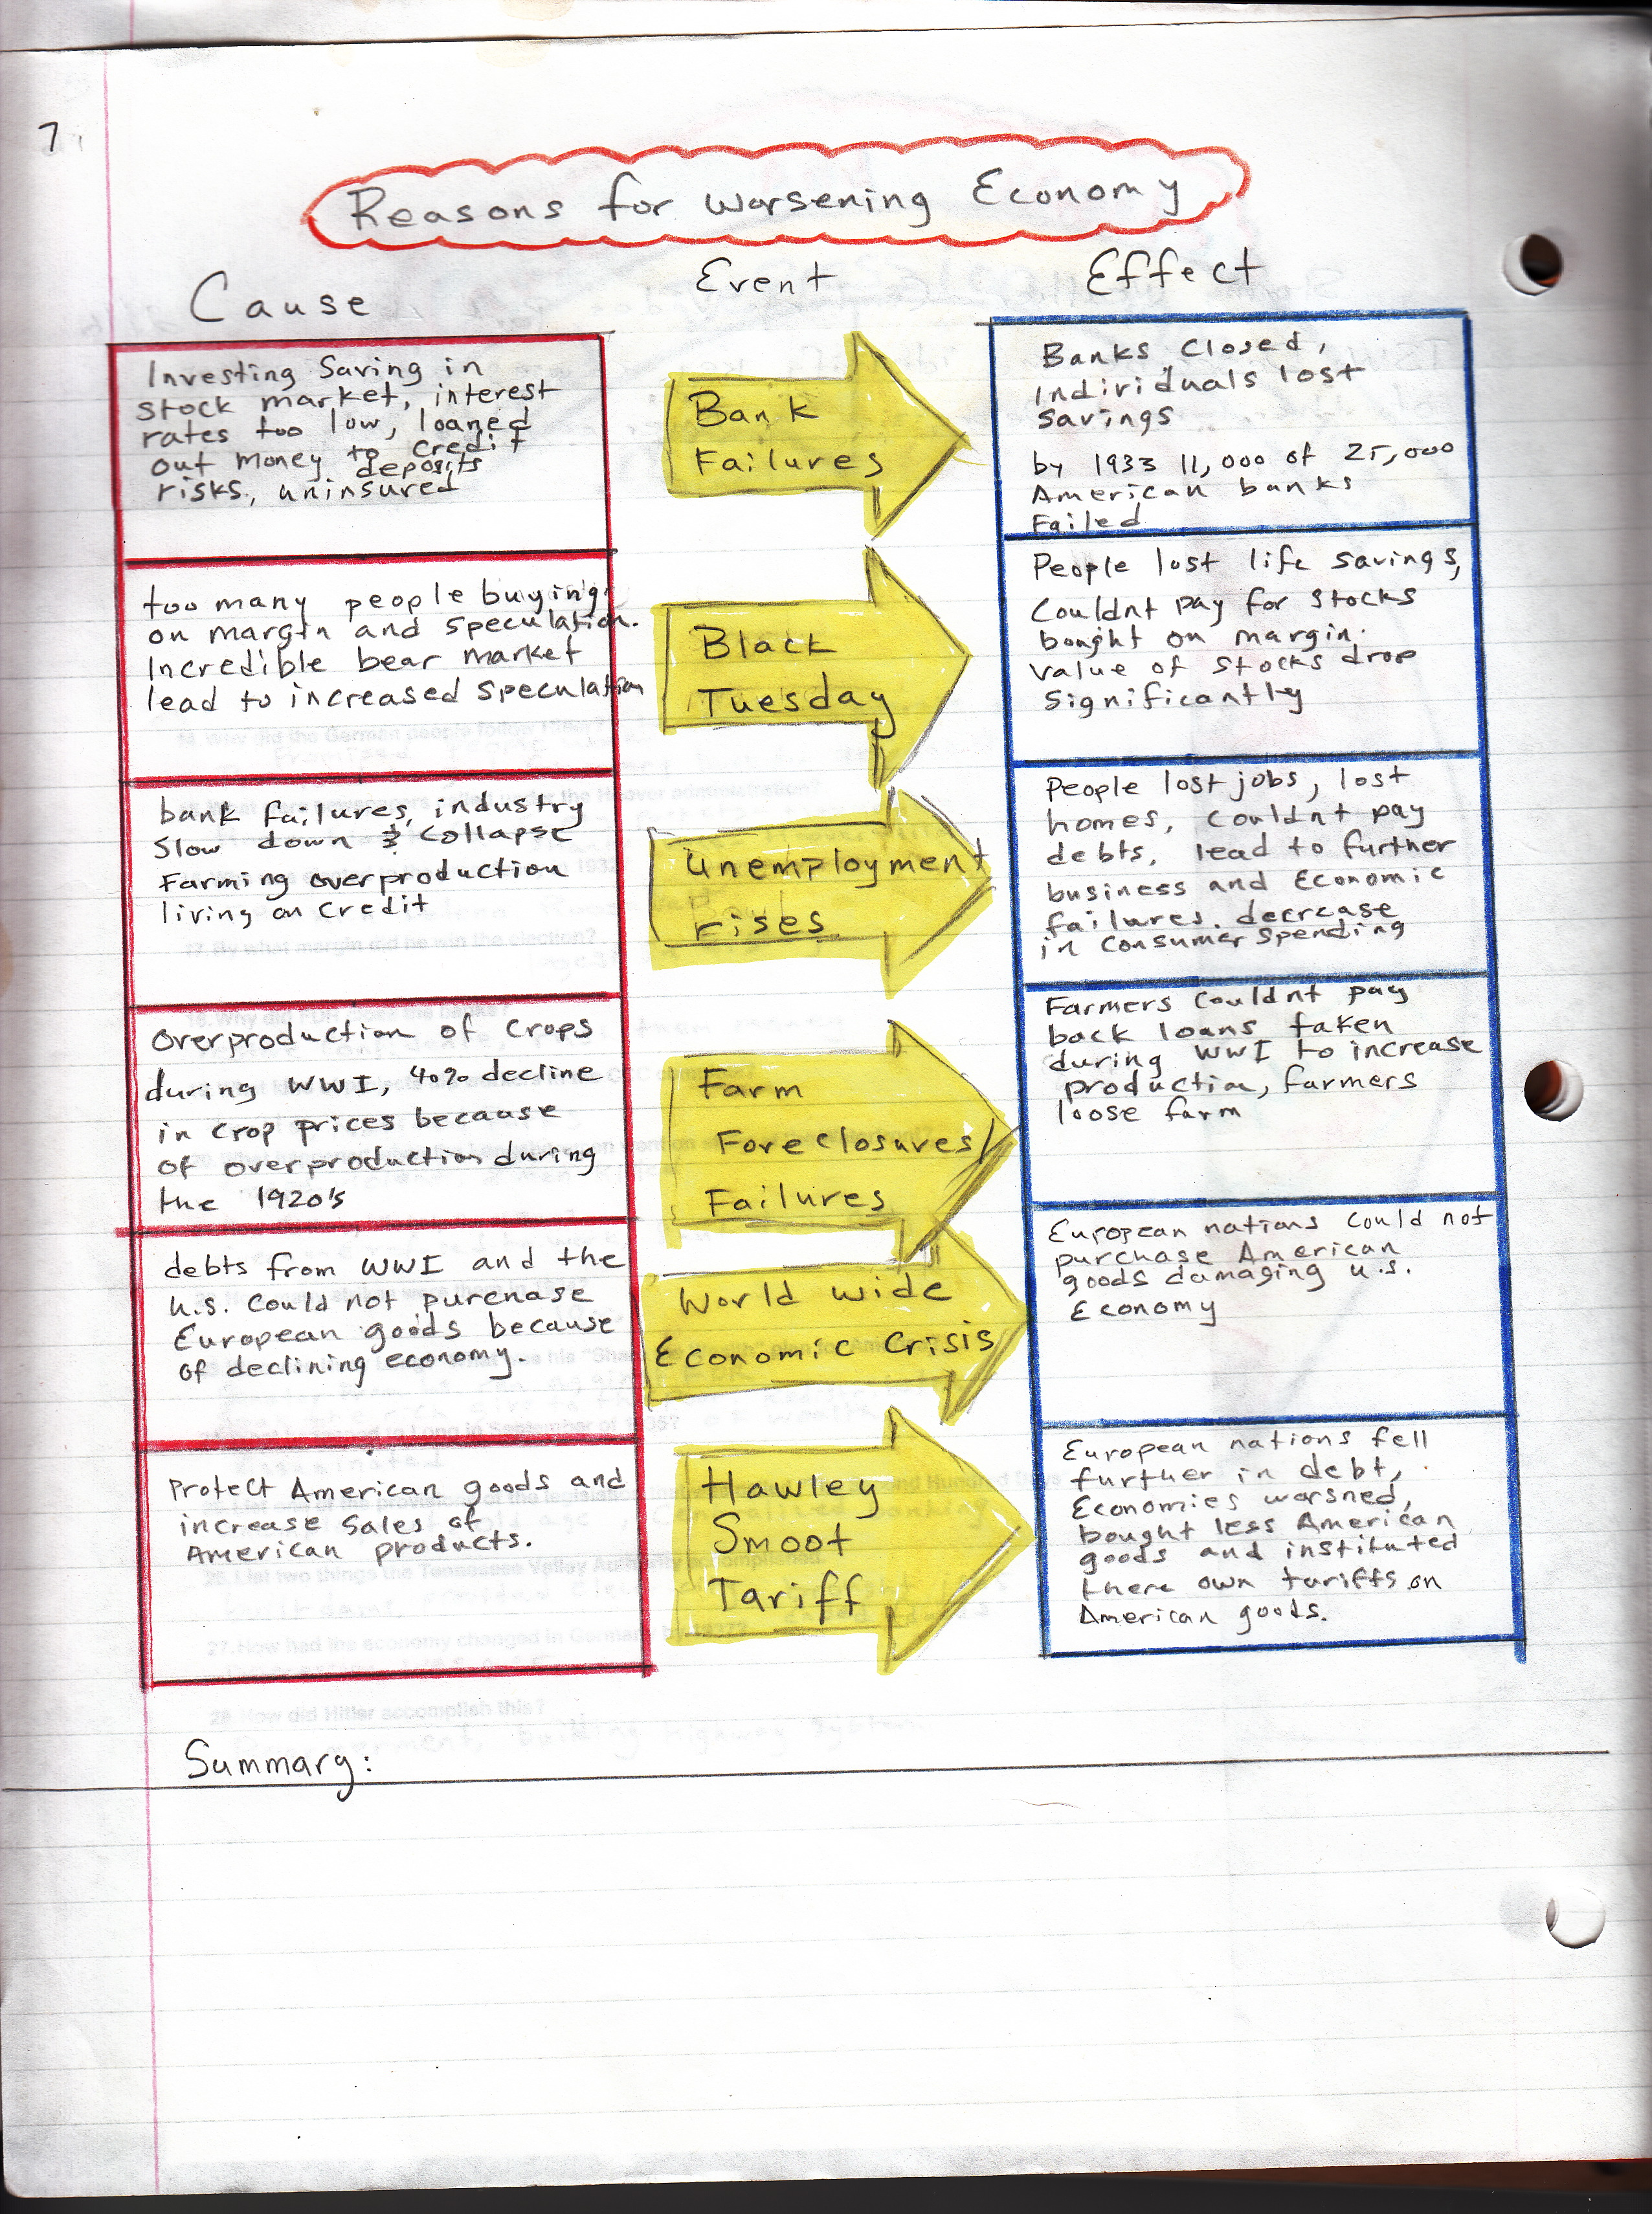 7.
Reasons for Worsening Economy
Cause
Event
Effect
Investing Saving in
stock market, interest
rates too low, loaned
out money to credit
risks, uninsured deposits
Bank
Failures
Banks closed,
Individuals lost
savings
by 1933 11,000 of 25,000
American banks
Failed
too many people buying
on margin and speculation.
Incredible bear market
lead to increased speculation
Black
Tuesday
People lost life savings,
Couldnt pay for stocks
bought on margin.
value of stocks drop
significantly
bank failures, industry
slow down & collapse
Farming overproduction
living on credit
Unemployment
rises
People lost jobs, lost
homes, couldnt pay
debts, lead to further
business and Economic
failures. decrease
in consumer spending
Overproduction of crops
during WWI, 40% decline
in crop prices because
of overproduction during
the 1920's
Farm
Foreclosures/
Failures
Farmers couldnt pay
back loans taken
during WWI to increase
production, farmers
loose farm
debts from WWI and the
U.S. could not purchase
European goods because
of declining economy.
World wide
Economic Crisis
European nations could not
purchase American
goods damaging U.S.
Economy
Protect American goods and
increase sales of
American products.
Hawley
Smoot
Tariff
European nations fell
further in debt,
Economies worsned,
bought less American
goods and instituted
there own tariffs on
American goods.
Summary: